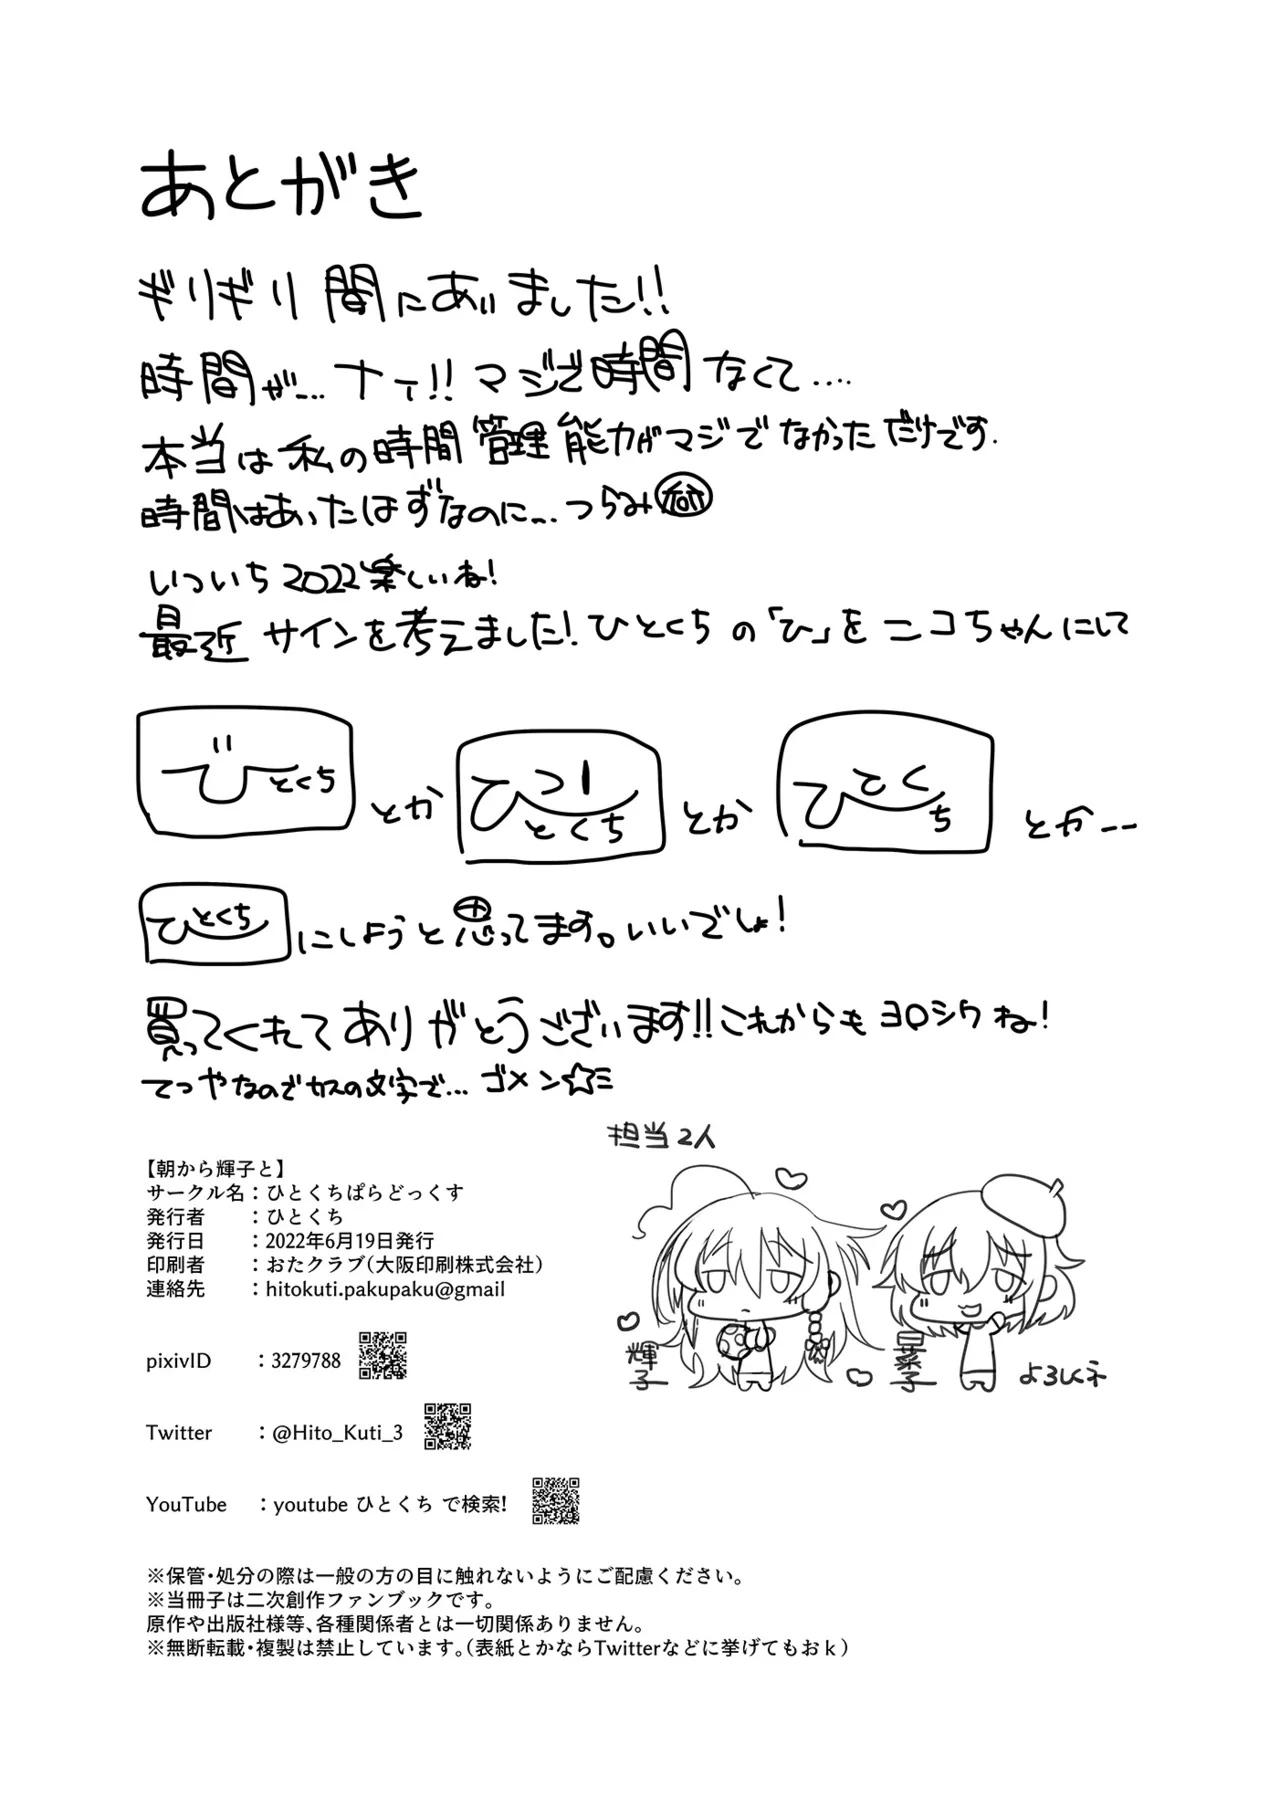 あとがき
ギリギリ間にあいました!!
時間が... ナイ!! マジで時間なくて....
本当は私の時間管理能力がマジでなかっただけです.
時間はあったはずなのに... つらみ
いついち2022楽しいね!
最近サインを考えました! ひとくちの「ひ」をニコちゃんにして
ひとくち
とか
ひとくち
とか
ひとくち
とか...
ひとくち
にしようと思ってます。いいでしょ!
買ってくれてありがとうございます!! これからもヨロシクね!
てつやなのでカスの文字で... ゴメン☆ミ
担当2人
輝子
よろしくネ
【朝から輝子と】
サークル名：ひとくちぱらどっくす
発行者 ：ひとくち
発行日 ：2022年6月19日発行
印刷者 ：おたクラブ(大阪印刷株式会社)
連絡先 ：hitokuti.pakupaku@gmail
pixivID ：3279788
Twitter ：@Hito_Kuti_3
YouTube ：youtube ひとくち で検索!
※保管・処分の際は一般の方の目に触れないようにご配慮ください。
※当冊子は二次創作ファンブックです。
原作や出版社様等、各種関係者とは一切関係ありません。
※無断転載・複製は禁止しています。(表紙とかならTwitterなどに挙げてもおｋ)